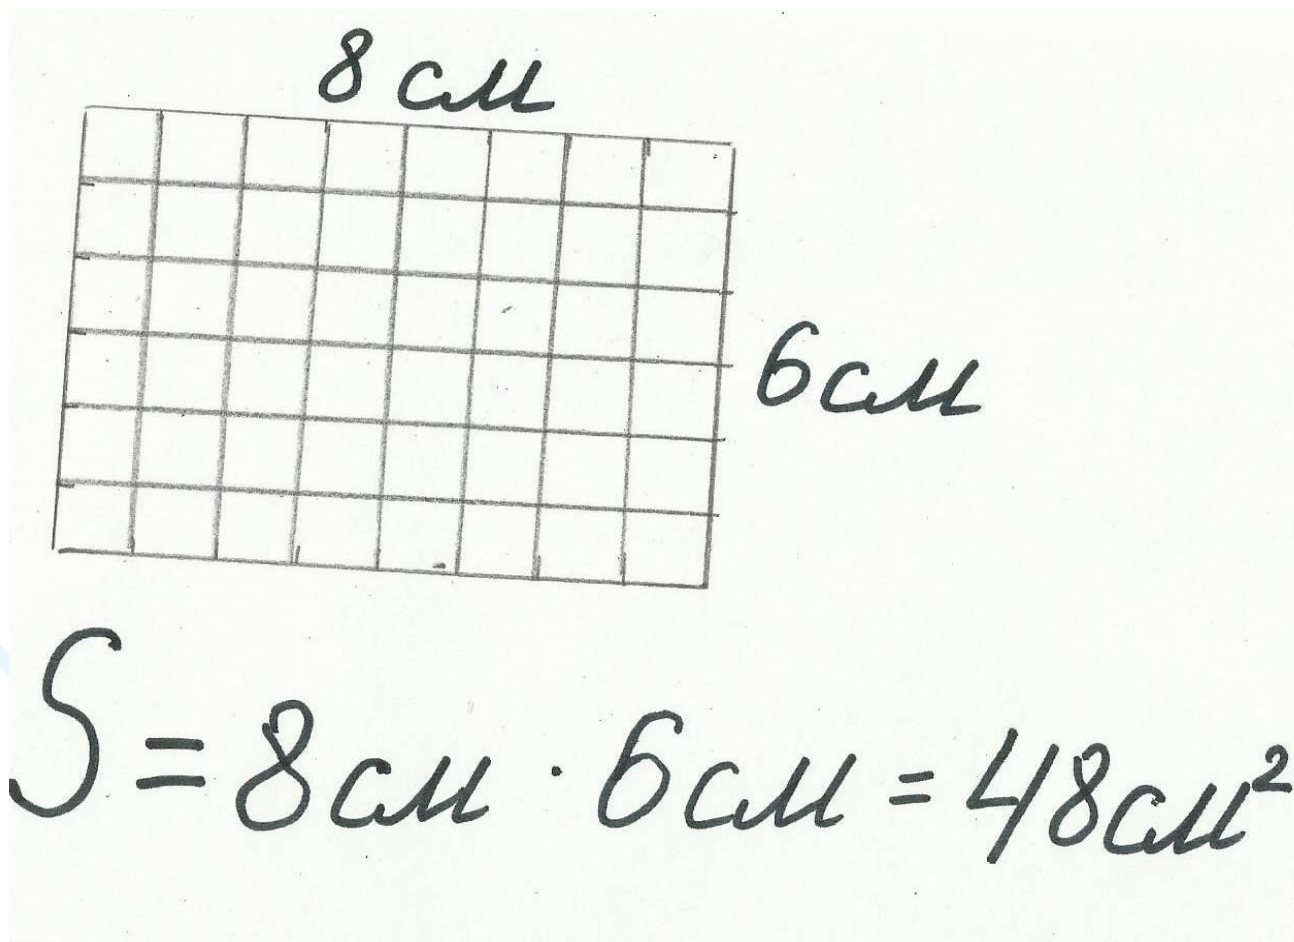 8 см
6 см
S = 8 см · 6 см = 48 см²